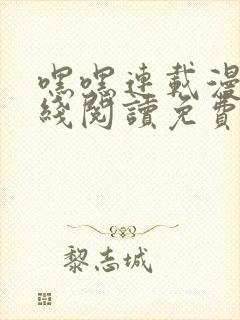 嘿嘿連載漫
綫閱讀免費
黎志城